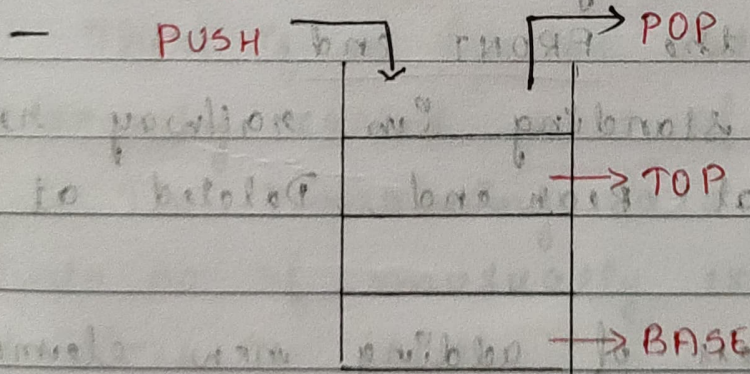 — PUSH POP
TOP
BASE